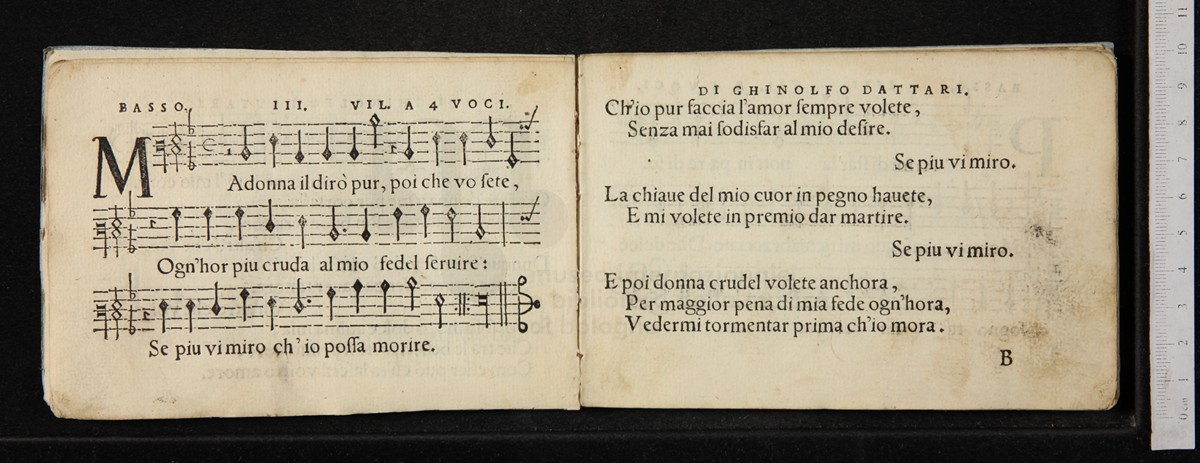 BASSO. III. VIL. A 4 VOCI.
MAdonna il dirò pur, poi che vo sete,
Ogn'hor piu cruda al mio fedel seruire:
Se piu vi miro ch' io possa morire.
DI GHINOLFO DATTARI.
Ch'io pur faccia l'amor sempre volete,
Senza mai sodisfar al mio desire.
Se piu vi miro.
La chiaue del mio cuor in pegno hauete,
E mi volete in premio dar martire.
Se piu vi miro.
E poi donna crudel volete anchora,
Per maggior pena di mia fede ogn'hora,
Vedermi tormentar prima ch'io mora.
B
11
10
9
8
7
6
5
4
3
2
1
0 cm